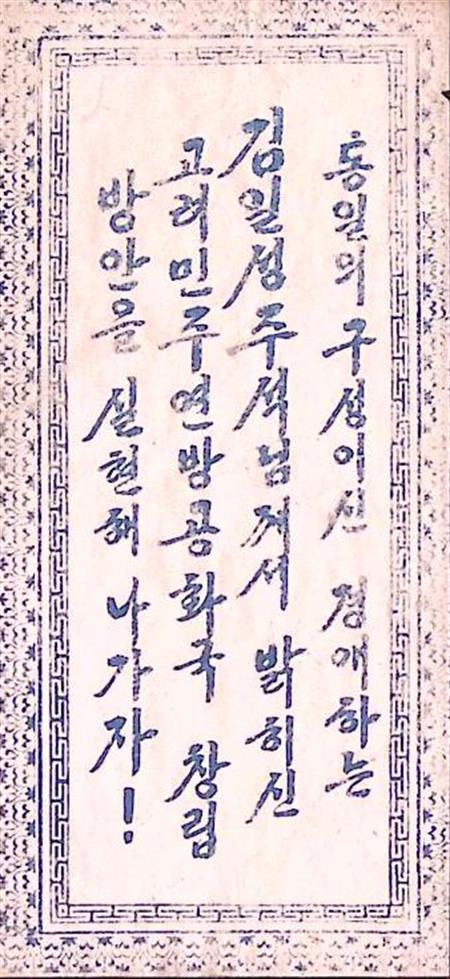 통일의 구성이신 경애하는
김일성주석님께서 밝히신
고려민주연방공화국 창립
방안을 실현해 나가자!